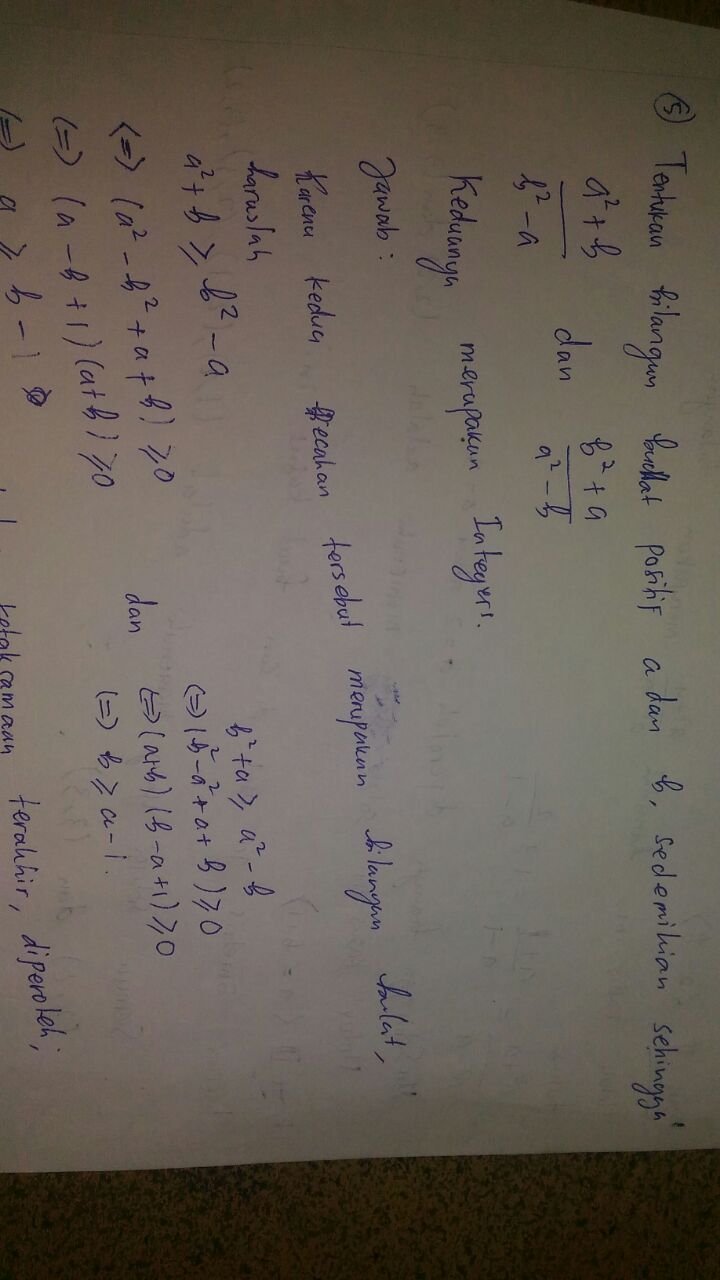 (5) Tentukan bilangan bulat positif a dan b, sedemikian sehingga
a² + b / b² - a dan b² + a / a² - b
Keduanya merupakan Integers.
Jawab:
Karena kedua pecahan tersebut merupakan bilangan bulat,
haruslah
a² + b ≥ b² - a
b² + a ≥ a² - b
(=) (a² - b² + a + b) ≥ 0
dan
(=) (b² - a² + a + b) ≥ 0
(=) (a - b + 1) (a+b) ≥ 0
(=) (a+b) (b - a + 1) ≥ 0
(=) a ≥ b - 1
(=) b ≥ a - 1.
ketaksamaan terakhir, diperoleh;